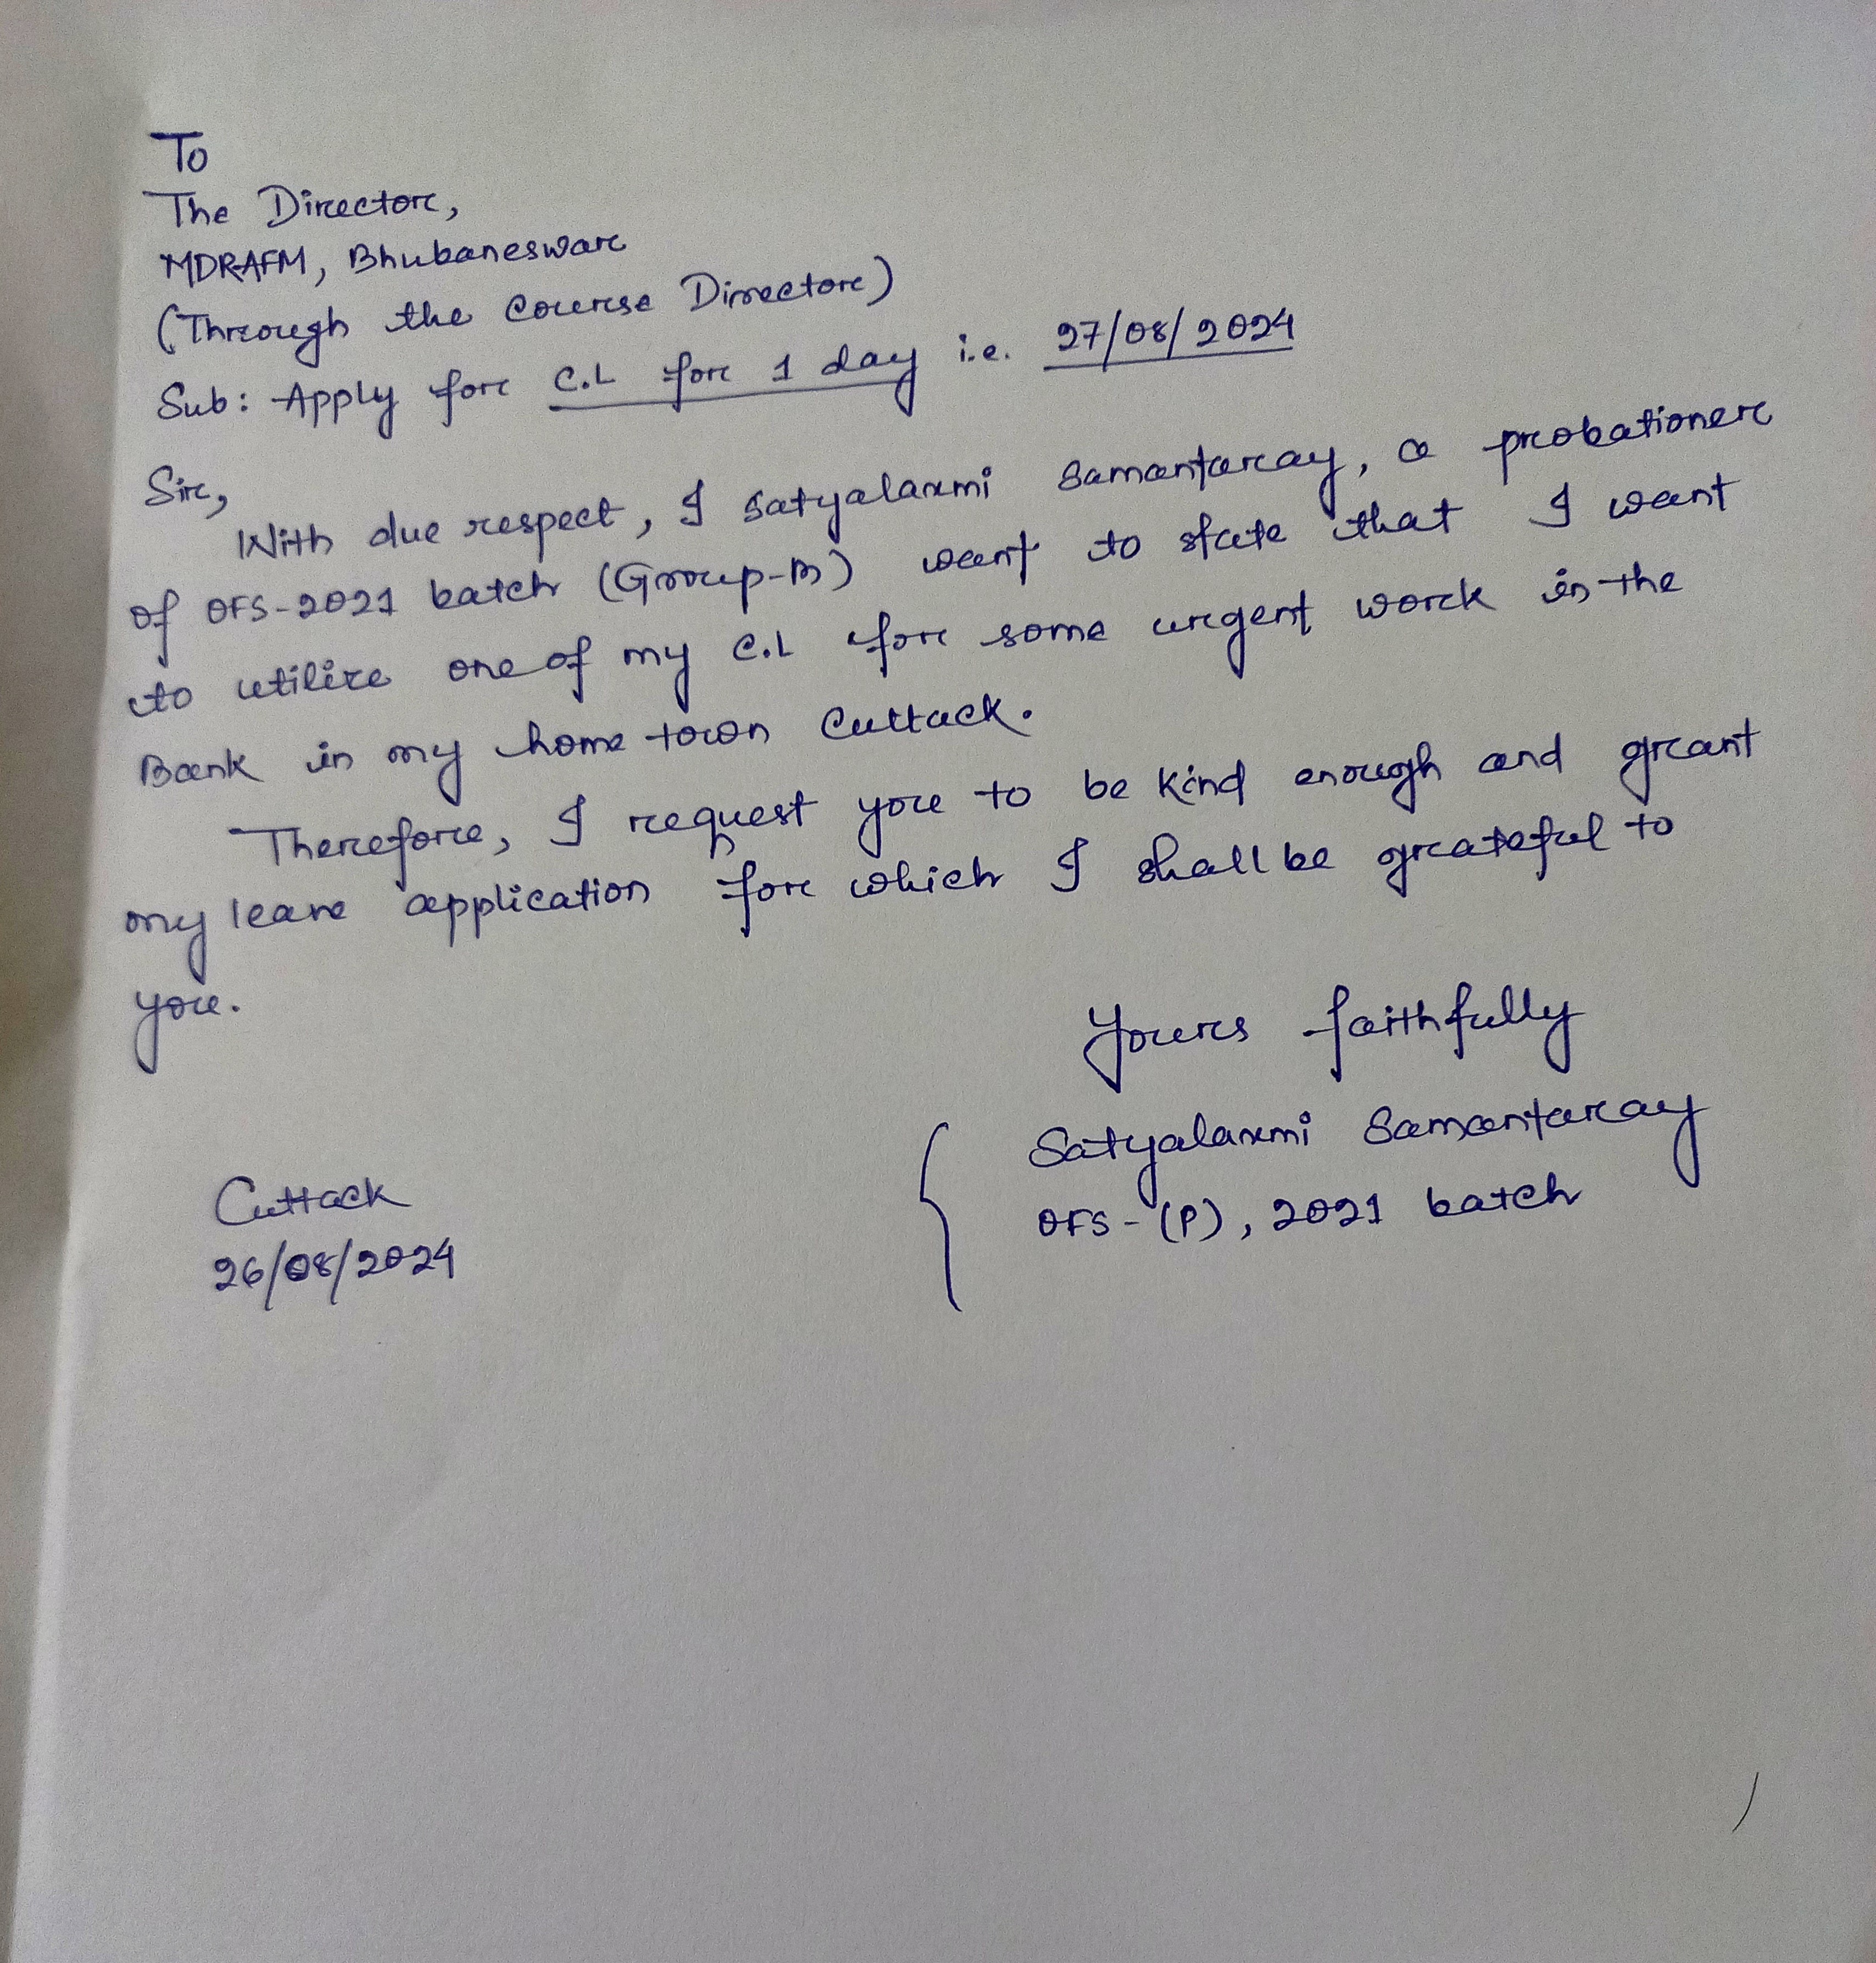 To
The Director,
MDRAFM, Bhubaneswar
(Through the Course Director)
Sub: Apply for C.L for 1 day i.e. 27/08/2024
Sir,
With due respect, I Satyalaxmi Samantaray, a probationer
of OFS-2021 batch (Group-B) want to state that I want
to utilize one of my C.L for some urgent work in the
Bank in my home town Cuttack.
Therefore, I request you to be kind enough and grant
my leave application for which I shall be grateful to
you.
Yours faithfully
Satyalaxmi Samantaray
OFS-(P), 2021 batch
Cuttack
26/08/2024